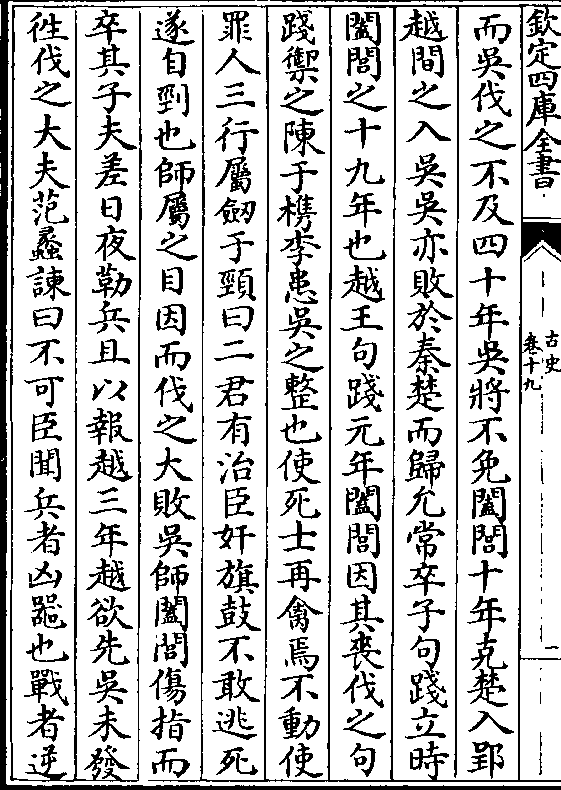 欽定四庫全書
古史
卷十九
二
而吳伐之不及四十年吳將不免闔閭十年克楚入郢
越間之入吳吳亦敗於秦楚而歸允常卒子句踐立時
闔閭之十九年也越王句踐元年闔閭因其喪伐之句
踐禦之陳于槜李患吳之整也使死士再禽焉不動使
罪人三行屬劔于頸曰二君有治臣奸旗鼓不敢逃死
遂自剄也師屬之目因而伐之大敗吳師闔閭傷指而
卒其子夫差日夜勒兵且以報越三年越欲先吳未發
徃伐之大夫范蠡諌曰不可臣聞兵者凶噐也戰者逆